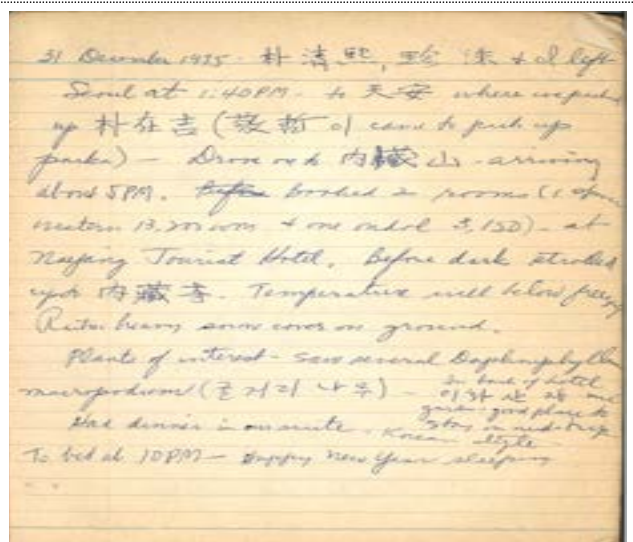 31 December 1975 - 朴清熙, 珍洙 & I left
Seoul at 1:40PM - to 天安 where we picked
up 朴在吉 (敬哲이 came to pick up
parka) - Drove on to 內藏山 - arriving
about 5PM. Before booked 2 rooms (1
western 13,200 won & one ondol 3,150) - at
Naejang Tourist Hotel. Before dark strolled
up to 內藏寺. Temperature well below freezing
Rather heavy snow cover on ground.
Plants of interest - Saw several Daphniphyllum
macropodum (굴거리 나무) -
In back of hotel
good place to
stay in mid-trip
Had dinner in our suite - Korean style
To bed at 10PM - Happy New Year sleeping